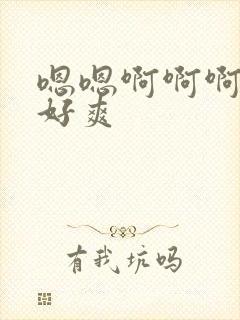 嗯嗯啊啊啊
好爽
有我坑吗